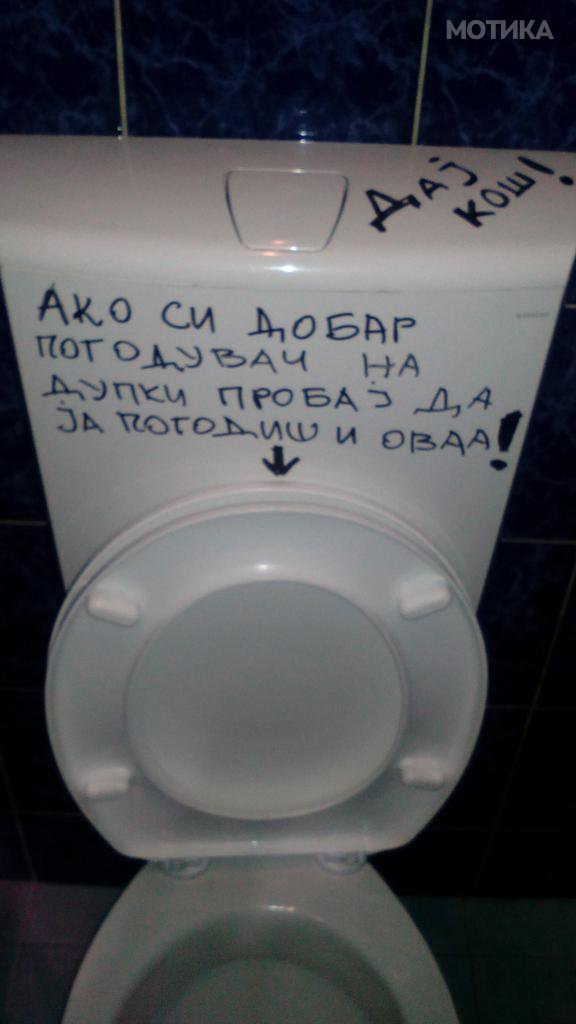 МОТИКА
ДАЈ
КОШ!
АКО СИ ДОБАР
ПОГОДУВАЧ НА
ДУПКИ ПРОБАЈ ДА
ЈА ПОГОДИШ И ОВАА!